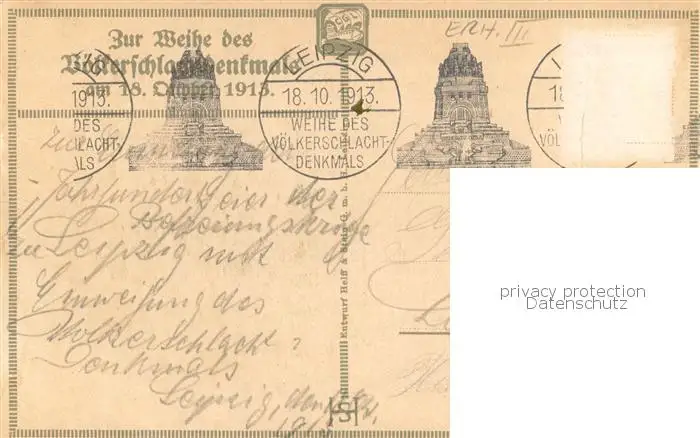 Zur Weihe des
Völkerschlachtdenkmals
am 18. Oktober 1913.
CGL
ERH. III
LEIPZIG
18.10.1913.
WEIHE DES
VÖLKERSCHLACHT-
DENKMALS
1913.
DES
CHLACHT-
ALS
L
18
VÖL
zur
Jahrhundertfeier der
Befreiungskriege
zu Leipzig mit
Einweihung des
Völkerschlacht-
Denkmals
Leipzig, den
Entwurf Helff & Stein G. m. b. H.
privacy protection
Datenschutz